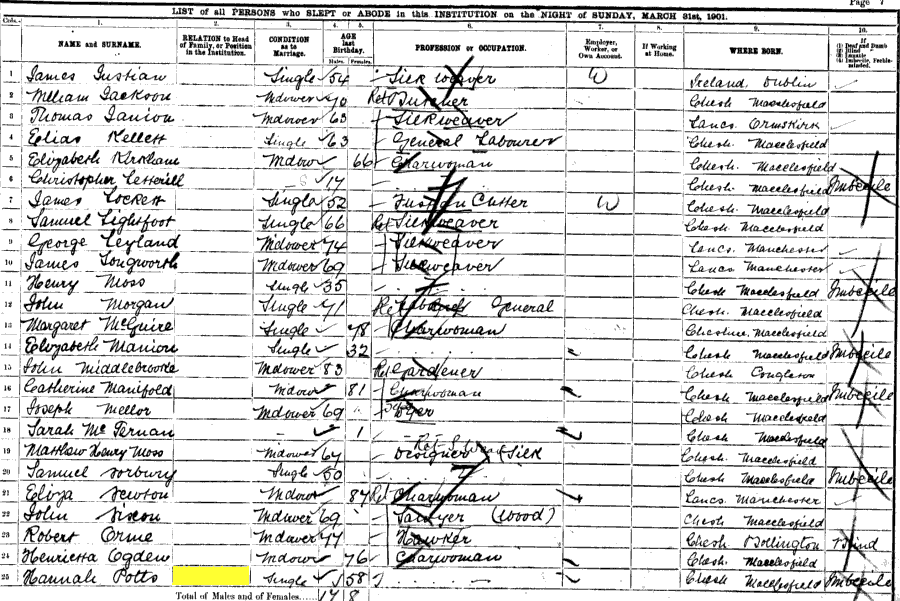 Page 7
LIST of all PERSONS who SLEPT or ABODE in this INSTITUTION on the NIGHT of SUNDAY, MARCH 31st, 1901.
Cols.— 1. 2. 3. 4. 5. 6. 7. 8. 9. 10.
NAME and SURNAME. RELATION to Head of Family, or Position in the Institution. CONDITION as to Marriage. AGE last Birthday. Males. Females. PROFESSION or OCCUPATION. Employer, Worker, or Own Account. If Working at Home. WHERE BORN. If (1) Deaf and Dumb (2) Blind (3) Lunatic (4) Imbecile, Feeble-minded.
1 James Single 54 Silk weaver W Ireland, Dublin
2 William Jackson Widower 70 Ret Butcher Chesh Macclesfield
3 Thomas Janion Widower 63 Silkweaver Lancs. Ormskirk
4 Elias Kellett Single 63 General Labourer Chesh Macclesfield
5 Elizabeth Kirkham Widow 66 Charwoman Chesh. Macclesfield
6 Christopher S 14 Chesh. Macclesfield Imbecile
7 James Lockett Single 52 Fustian Cutter W Chesh. Macclesfield
8 Samuel Lightfoot Single 66 Ret Silkweaver Chesh Macclesfield
9 George Leyland Widower 74 Silkweaver Lancs. Manchester
10 James Longworth Widower 69 Silkweaver Lancs Manchester
11 Henry Moss Single 35 Chesh. Macclesfield Imbecile
12 John Morgan Single 71 Ret General Chesh. Macclesfield
13 Margaret McGuire Single 78 Charwoman Cheshire. Macclesfield
14 Elizabeth Manion Single 32 Chesh Macclesfield Imbecile
15 John Middlebrooke Widower 83 Ret Gardener Chesh Congleton
16 Catherine Manifold Widow 81 Charwoman Chesh. Macclesfield Imbecile
17 Joseph Mellor Widower 69 Dyer Chesh Macclesfield
18 Sarah Mc Ternan 1 Chesh Macclesfield
19 Matthew Henry Moss Widower 64 Designer Silk Chesh. Macclesfield
20 Samuel Single 50 Chesh Macclesfield Imbecile
21 Eliza Newton Widow 84 Ret Charwoman Lancs. Manchester
22 John Nixon Widower 69 Sawyer (Wood) Chesh Macclesfield
23 Robert Orme Widower 77 Hawker Chesh Bollington Blind
24 Henrietta Ogden Widow 76 Charwoman Chesh. Macclesfield
25 Hannah Potts Single 58 Chesh Macclesfield Imbecile
Total of Males and of Females...... 17 8